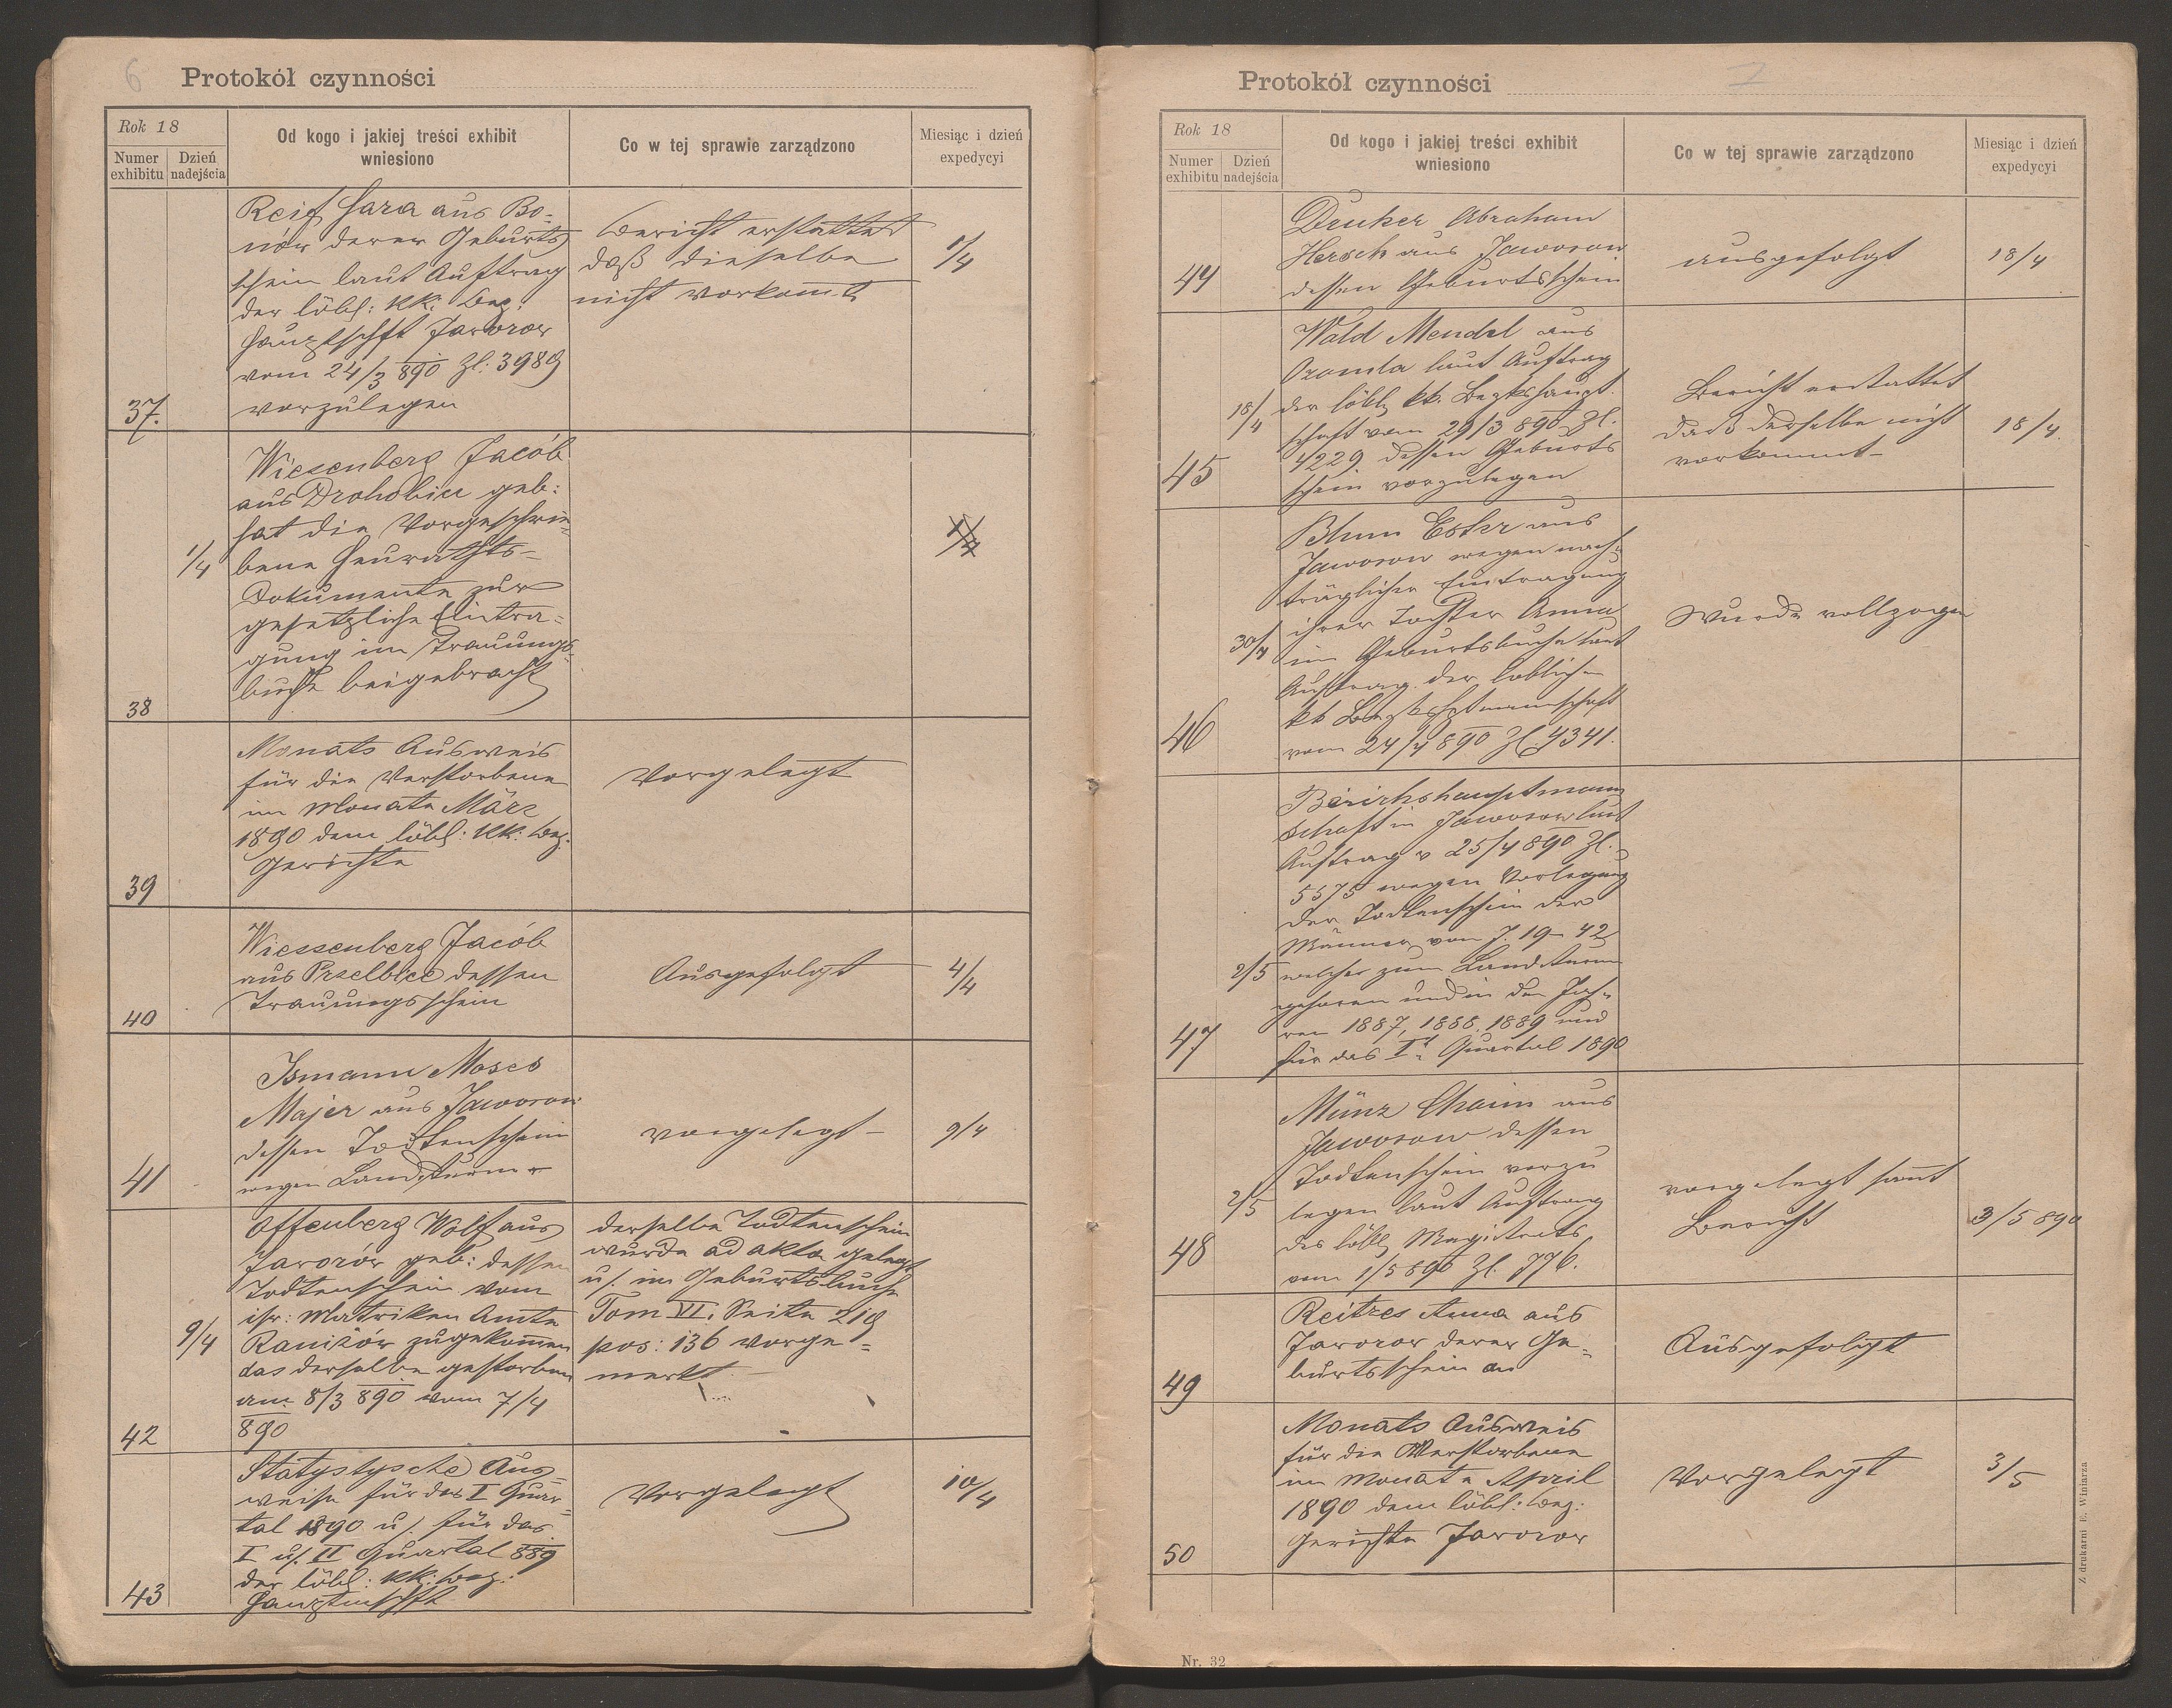 6
Protokół czynności
Rok 18
Numer exhibitu
Dzień nadejścia
Od kogo i jakiej treści exhibit wniesiono
Co w tej sprawie zarządzono
Miesiąc i dzień expedycyi
37.
Reif Sara aus Bo-
nów deren Geburts
schein laut Auftrag
der löbl: kk: Bez:
Hauptschft Jaworow
vom 24/3 890 Zl: 3989
vorzulegen
Bericht erstattet
daß dieselbe
nicht vorkomt
1/4
38
1/4
Wiesenberg Jacób
aus Drohobicz geb:
hat die Vorgeschrie-
bene Heuraths-
Dokumente zur
gesetzliche Eintra-
gung im Trauungs-
buche beigebracht
39
Monats Ausweis
für die Verstorbene
im Monate März
1890 dem löbl: kk: Bez:
Gerichte
Vorgelegt
40
Wiessenberg Jacób
aus Przelbice dessen
Trauungsschein
Ausgefolgt
4/4
41
Ismann Moses
Majer aus Jaworow
dessen Todtenschein
wegen Landsturm
vorgelegt
9/4
42
9/4
Offenberg Wolf aus
Jaworów geb: dessen
Todtenschein vom
isr: Matriken Amte
Raniżów zugekomen
das derselbe gestorben
am 8/3 890 vom 7/4
890
derselbe Todtenschein
wurde ad akta gelegt
u. im Geburtsbuche
Tom VI. Seite 219
pos: 136 vorge-
merkt
43
Statystysche Aus-
weise für das I Quar-
tal 1890 u. für das
I u. II Quartal 889
der löbl: kk: Bez:
Hauptmschft
Vorgelegt
10/4
7
Protokół czynności
Rok 18
Numer exhibitu
Dzień nadejścia
Od kogo i jakiej treści exhibit wniesiono
Co w tej sprawie zarządzono
Miesiąc i dzień expedycyi
44
Druker Abraham
Hersch aus Jaworow
dessen Geburtsschein
ausgefolgt
18/4
45
18/4
Wald Mendel aus
Ozomla laut Auftrag
der löbl kk. Bezkshaupt
schaft vom 29/3 890 Zl.
4229 dessen Geburts
schein vorzulegen
Bericht erstattet
daß derselbe nicht
vorkommt
18/4.
46
30/4
Blum Ester aus
Jaworow wegen nach-
träglicher Eintragung
ihrer Tochter Anna
im Geburtsbuche laut
Auftrag der löblichen
kk Bezkshptmannschaft
vom 24/4 890 Zl 4341.
Wurde vollzogen
47
2/5
Bezirkshauptmann
schaft in Jaworow laut
Auftrag v 25/4 890 Zl.
5575 wegen Vorlegung
der Todtenschein der
Männer vom J. 19-42
welcher zum Landsturm
gehoren und in den Jah-
ren 1887, 1888. 1889 und
für das I Quartal 1890
48
2/5
Münz Chaim aus
Jaworow dessen
Todtenschein vorzu
legen laut Auftrag
des löbl Magistrats
vom 1/5 890 Zl. 776.
vorgelegt samt
Bericht
3/5 890
49
Reitzes Anna aus
Jaworow deren Ge-
burtsschein
Ausgefolgt
50
Monats Ausweis
für die Verstorbene
im Monate April
1890 dem löbl: Bez:
Gerichte Jaworow
Vorgelegt
3/5
Nr. 32
Z drukarni E. Winiarza